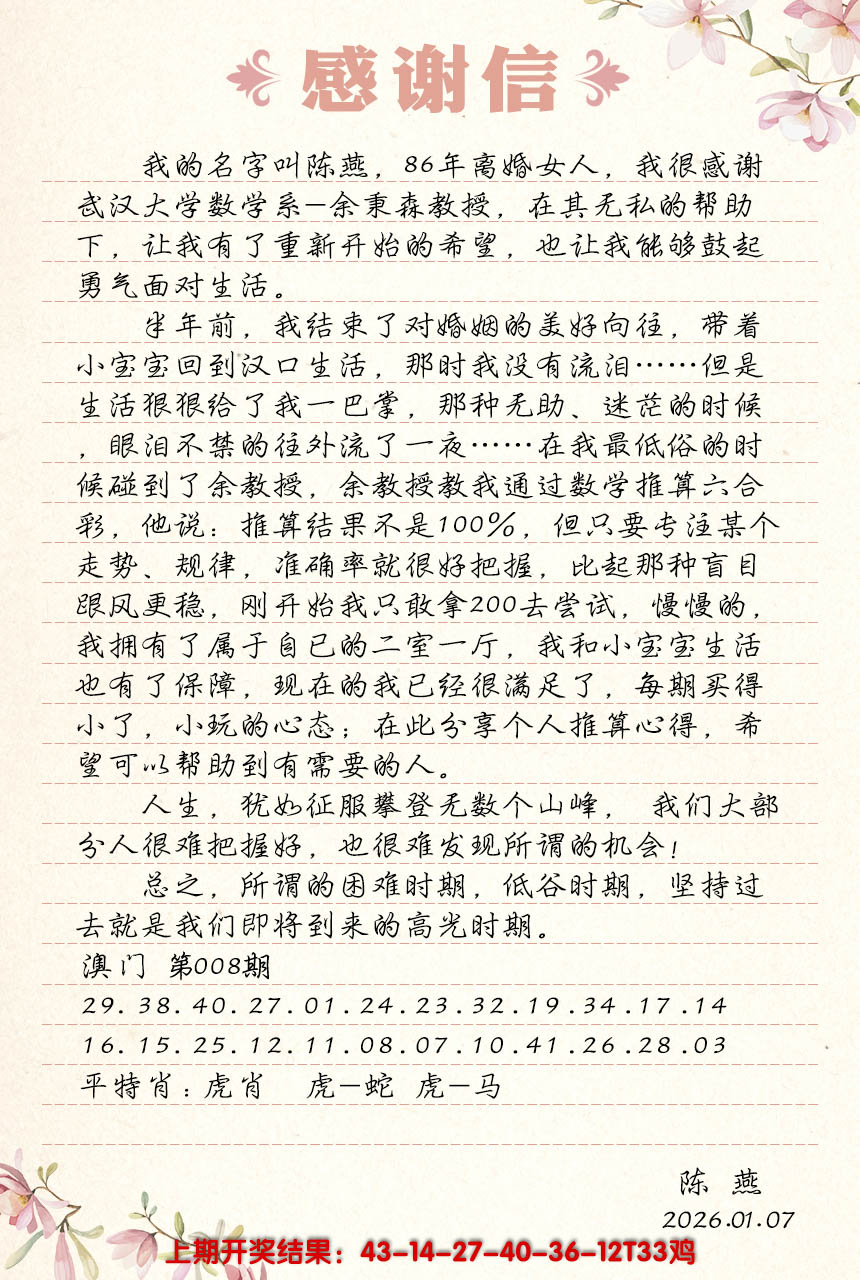 感谢信
我的名字叫陈燕，86年离婚女人，我很感谢
武汉大学数学系-余秉森教授，在其无私的帮助
下，让我有了重新开始的希望，也让我能够鼓起
勇气面对生活。
半年前，我结束了对婚姻的美好向往，带着
小宝宝回到汉口生活，那时我没有流泪……但是
生活狠狠给了我一巴掌，那种无助、迷茫的时候
，眼泪不禁的往外流了一夜……在我最低俗的时
候碰到了余教授，余教授教我通过数学推算六合
彩，他说：推算结果不是100%，但只要专注某个
走势、规律，准确率就很好把握，比起那种盲目
跟风更稳，刚开始我只敢拿200去尝试，慢慢的，
我拥有了属于自已的二室一厅，我和小宝宝生活
也有了保障，现在的我已经很满足了，每期买得
小了，小玩的心态；在此分享个人推算心得，希
望可以帮助到有需要的人。
人生，犹如征服攀登无数个山峰， 我们大部
分人很难把握好，也很难发现所谓的机会！
总之，所谓的困难时期，低谷时期，坚持过
去就是我们即将到来的高光时期。
澳门 第008期
29.38.40.27.01.24.23.32.19.34.17.14
16.15.25.12.11.08.07.10.41.26.28.03
平特肖：虎肖 虎-蛇 虎-马
陈 燕
2026.01.07
上期开奖结果：43-14-27-40-36-12T33鸡